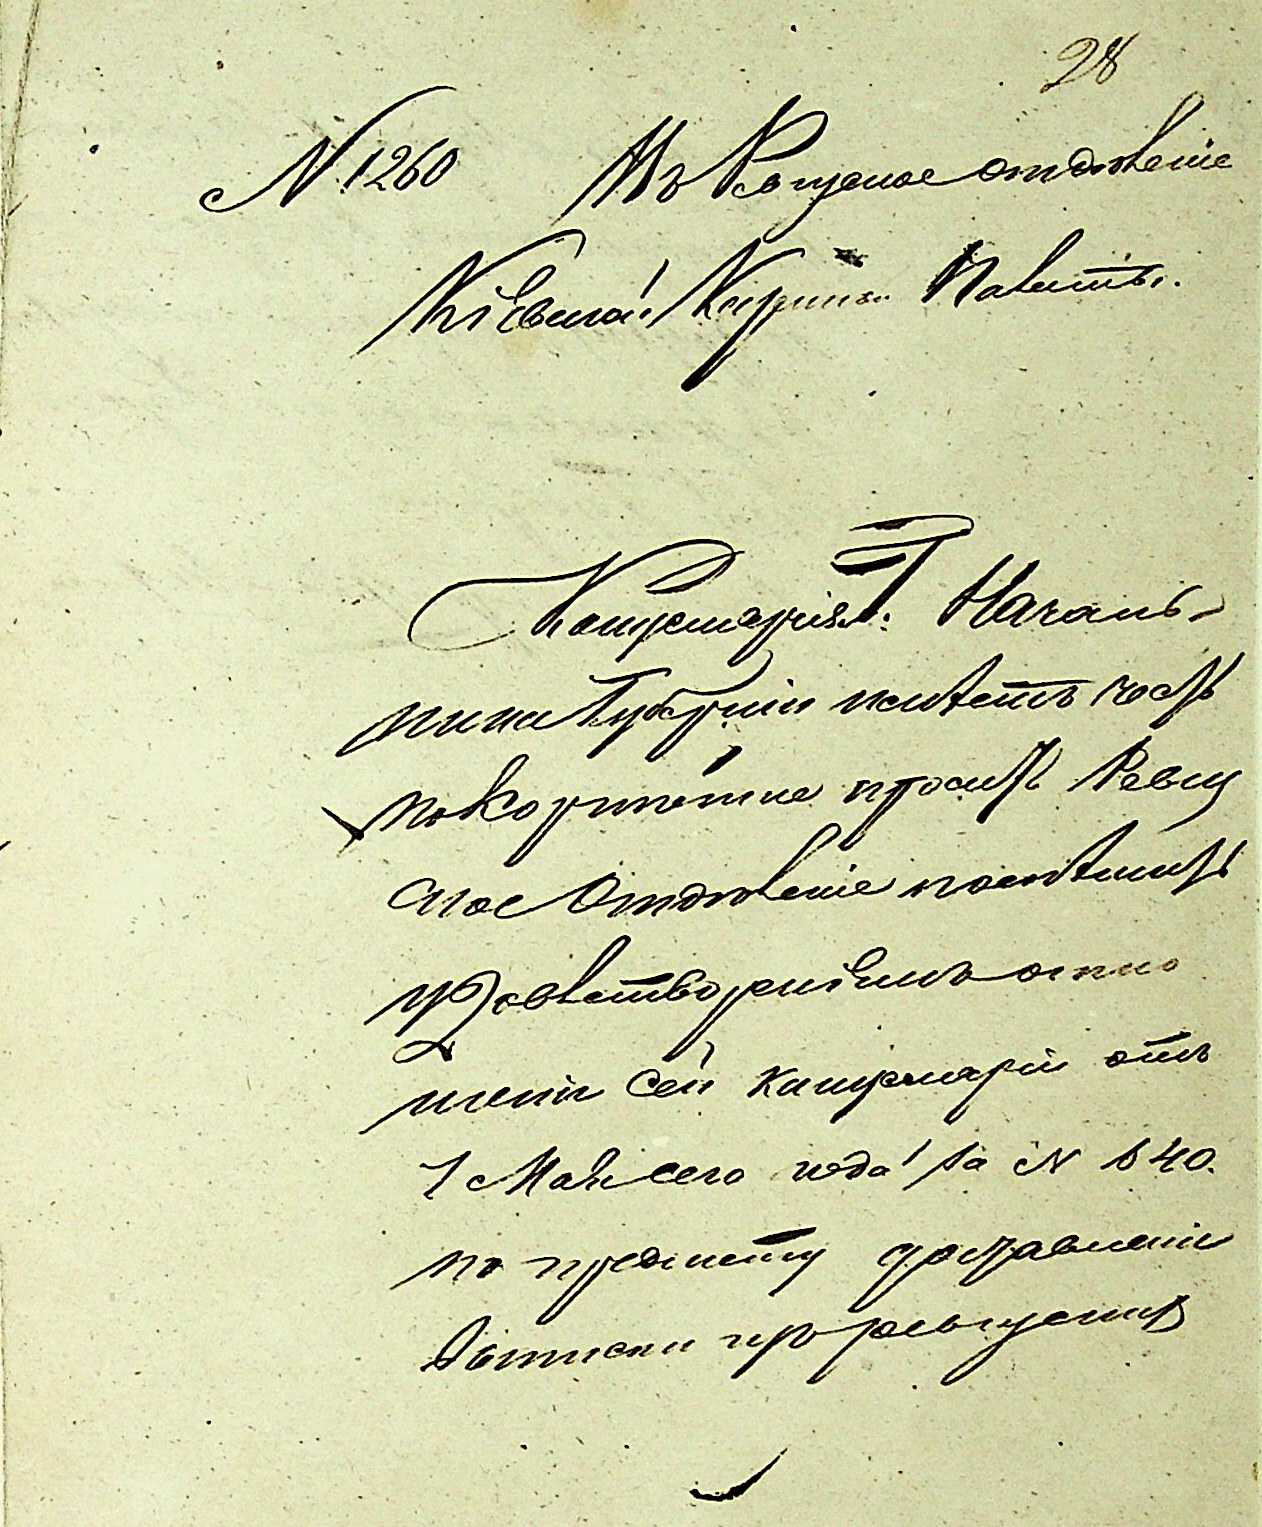 28
№ 1260 Въ Ревизское отдѣленіе
Кіевской Казенной Палаты.
Канцелярія Г. Началь-
ника Губерніи имѣетъ честь
покорнѣйше просить Ревиз
ское Отдѣленіе поспѣшить
удовлетвореніемъ отно
шенія сей Канцеляріи отъ
7 Мая сего года за №
по предмету доставленія
выписки изъ ревизскихъ